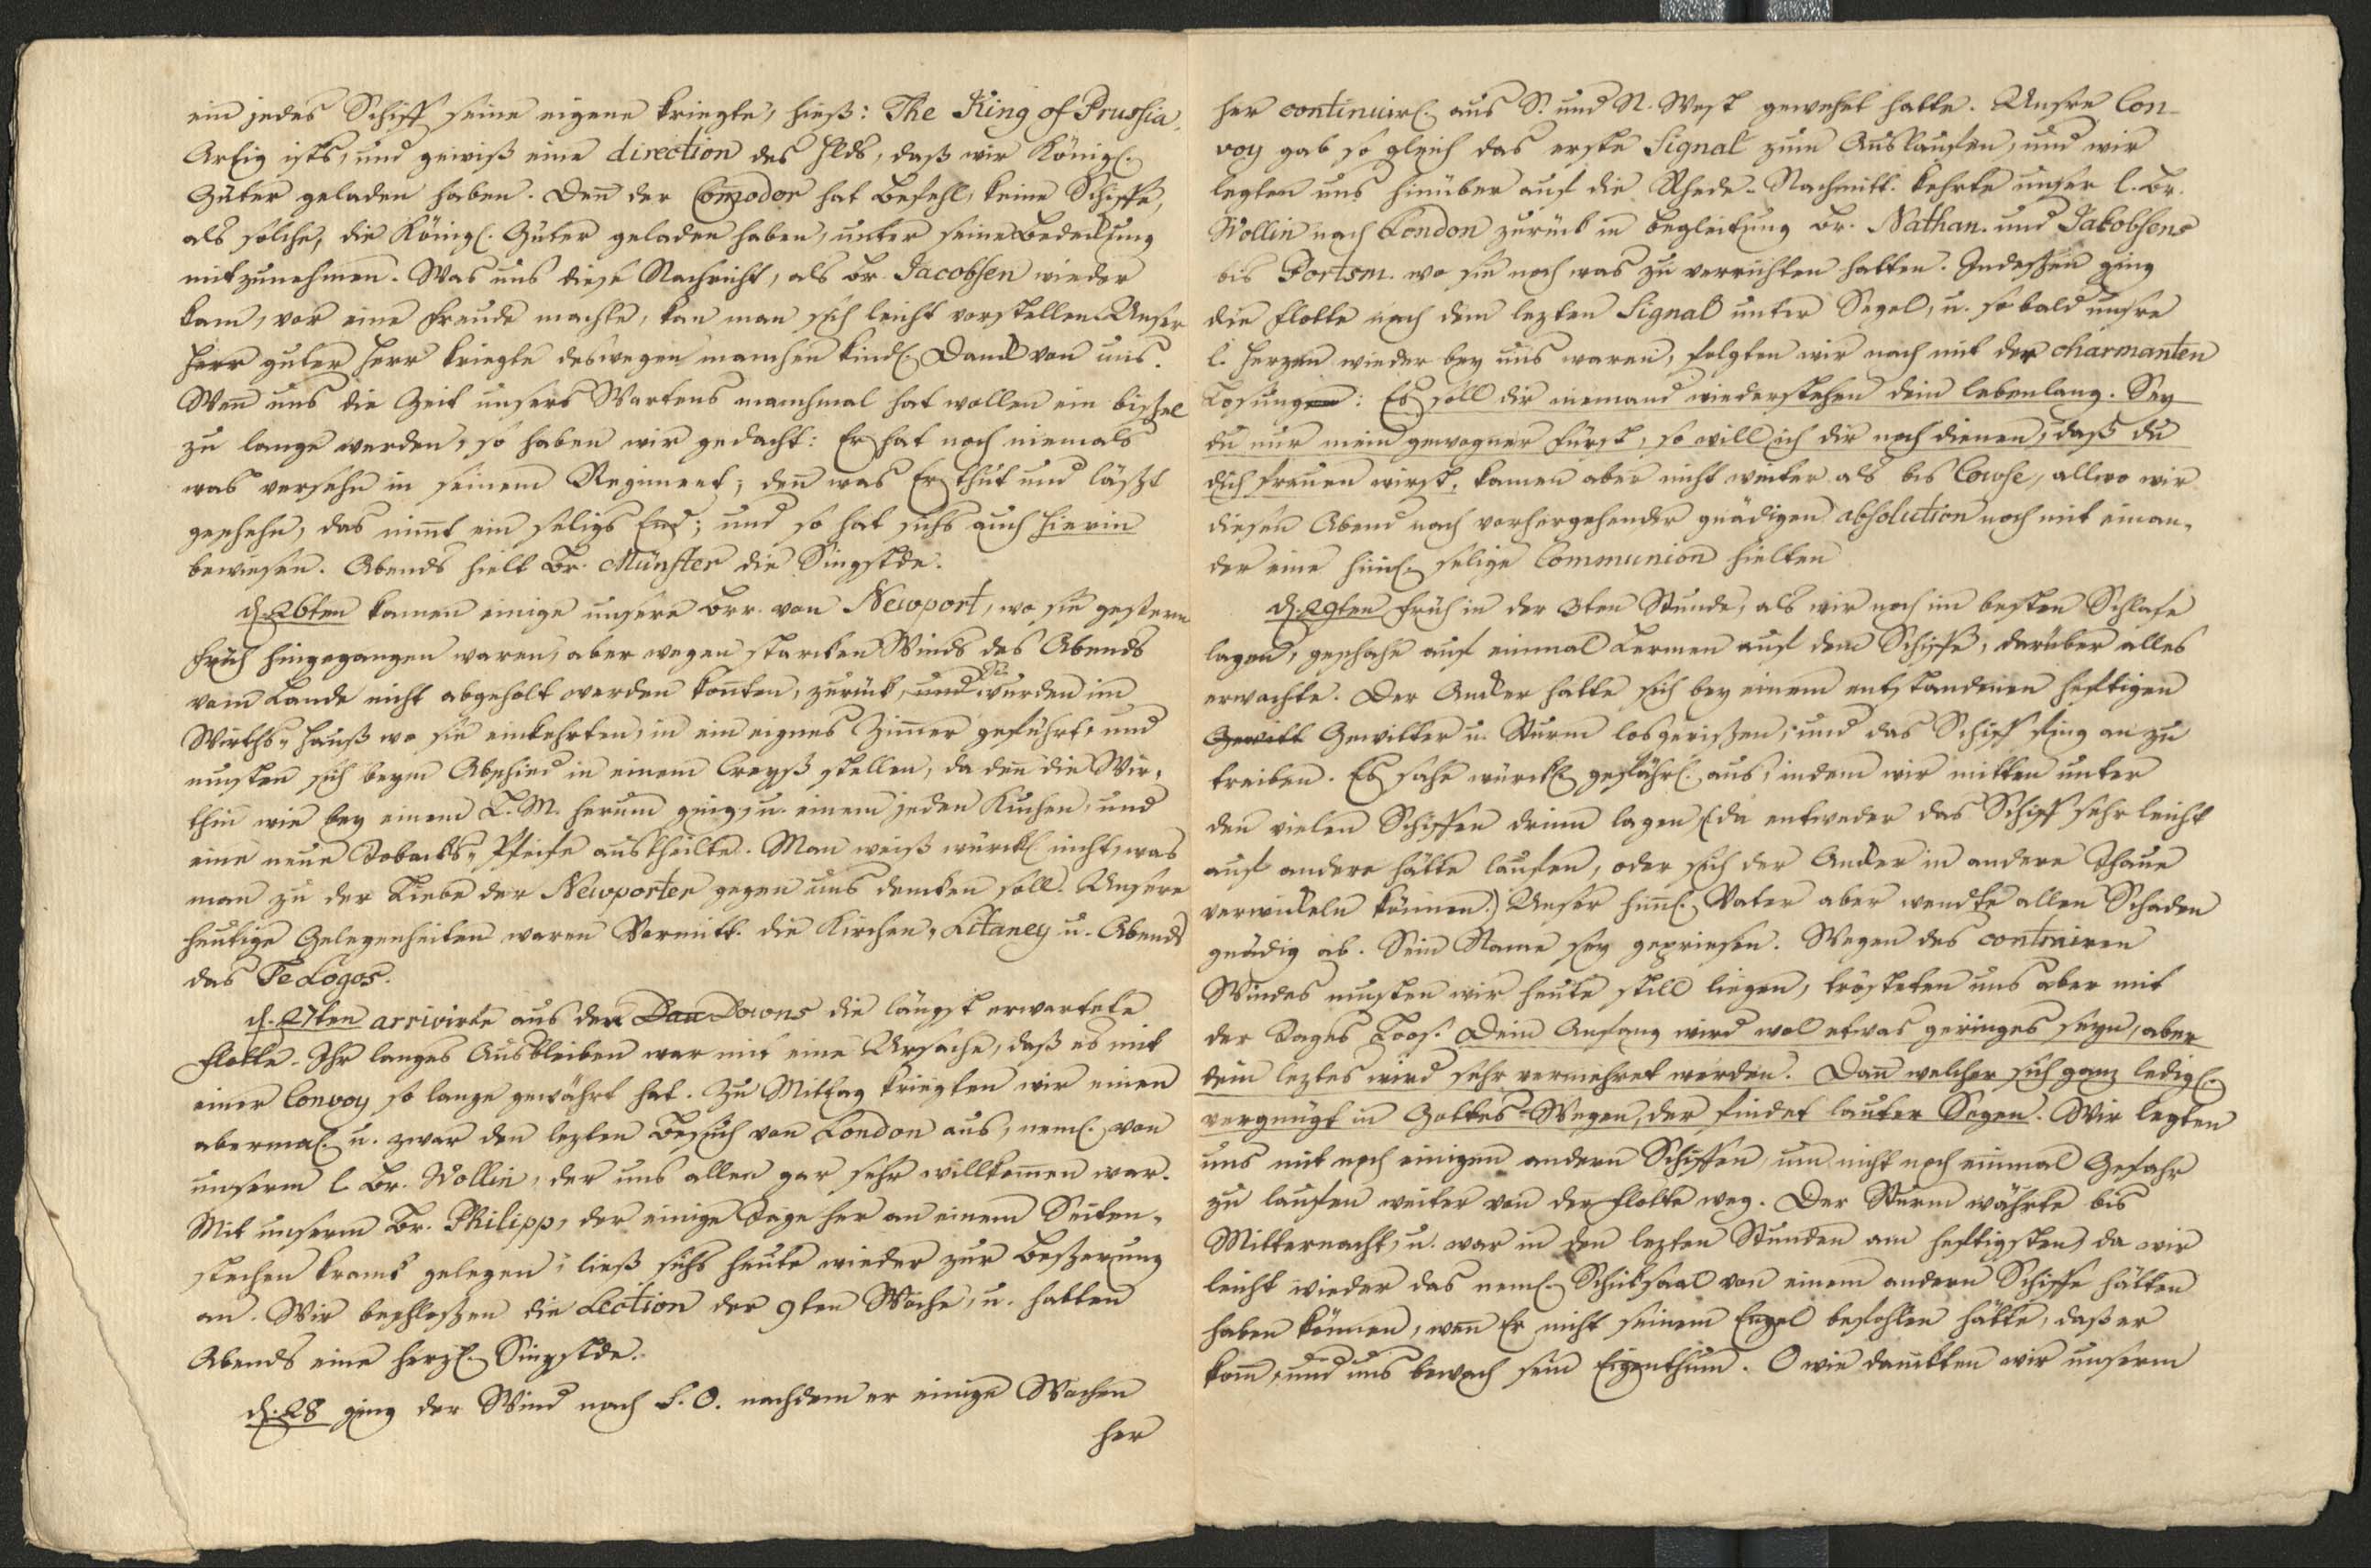 ein jedes Schiff seine eigene kriegte, hieß: The King of Prussia.
Artig ists, und gewiß eine direction des Hlds, daß wir Königl.
Güter geladen haben. Den der Comodor hat Befehl, keine Schiffe,
als solche, die Königl. Güter geladen haben, unter seine Bedeckung
mitzunehmen. Was uns diese Nachricht, als Br. Jacobsen wieder
kam, vor eine Freude machte, kan man sich leicht vorstellen. Unser
Herr guter Herr kriegte deswegen manchen kindl. Danck von uns.
Wen uns die Zeit unsers Wartens manchmal hat wollen ein bissel
zu lange werden, so haben wir gedacht: Er hat noch niemals
was versehn in seinem Regiment; den was Er thut und läßt
geschehn, das nimt ein seligs End; und so hat sichs auch hierin
bewiesen. Abends hielt Br. Münster die Singstde.
d. 26ten kamen einige unsere Brr. von Newport, wo sie gestern
früh hingegangen waren, aber wegen starcken Winds des Abends
vom Lande nicht abgeholt werden konten, zurück, und Sie wurden im
Wirths-Hauß wo sie einkehrten, in ein eignes Zimer geführt, und
musten sich beym Abschied in einem Creyß stellen, da den die Wir-
thin wie bey einem L. M. herum ging, u. einem jeden Kuchen, und
eine neue Tobacks-Pfeife austheilte. Man weiß würckl nicht, was
man zu der Liebe der Newporter gegen uns dencken soll. Unsere
heutige Gelegenheiten waren Vormitt. die Kirchen-Litaney u. Abends
das Te Logos.
d. 27ten arrivirte aus den Dau Downs die längst erwartete
Flotte. Ihr langes Ausbleiben war mit eine Ursache, daß es mit
einer Convoy so lange gewährt hat. Zu Mittag kriegten wir einen
abermal. u. zwar den lezten Besuch von London aus, neml. von
unserm l Br. Wollin, der uns allen gar sehr willkomen war.
Mit unserm Br. Philipp, der einige Tage her an einem Seiten-
stechen kranck gelegen, ließ sichs heute wieder zur Beßerung
an. Wir beschloßen die Lection der 9ten Woche, u. hatten
Abends eine herzl. Singstde.
d. 28 ging der Wind nach S. O. nachdem er einige Wochen
her
her continuirl. aus S. und N. West gewehet hatte. Unsre Con-
voy gab so gleich das erste Signal zum Auslaufen, und wir
legten uns hinüber auf die Rhede. Nachmitt. kehrte unser l. Br.
Wollin nach London zurück in Begleitung Br. Nathan. und Jakobsens
bis Portsm. wo sie noch was zu verrichten hatten. Indeßen ging
die Flotte nach dem lezten Signal unter Segel, u. so bald unsre
l. Herzen wieder bey uns waren, folgten wir nach mit der charmanten
Losung: Es soll dir niemand wiederstehen dein lebenlang. Sey
du nur mein gewogner Fürst, so will ich dir noch dienen, daß du
dich freuen wirst, kamen aber nicht weiter als bis Cowse, allwo wir
diesen Abend nach vorhergehender gnädigen absolution noch mit einan-
der eine himl. selige Communion hielten
d. 29ten früh in der 3ten Stunde, als wir noch im besten Schlafe
lagen, geschahe auf einmal Lermen auf dem Schiffe, darüber alles
erwachte. Der Ancker hatte sich bey einem entstandenen heftigen
Gewitt Gewitter u. Sturm losgerißen, und das Schiff fing an zu
treiben. Es sahe würckl. gefährl. aus, indem wir mitten unter
den vielen Schiffen drinn lagen (da entweder das Schiff sehr leicht
auf andere hätte laufen, oder sich der Ancker in andere Thaue
verwickeln können.) Unser himl. Vater aber wendte allen Schaden
gnädig ab. Sein Name sey gepriesen. Wegen des contrairen
Windes musten wir heute still liegen, trösteten uns aber mit
der Tages Loos: Dein Anfang wird wol etwas geringes seyn, aber
dein leztes wird sehr vermehret werden. Dann welcher sich ganz ledigl.
vergnügt in Gottes-Wegen, der findet lauter Segen. Wir legten
uns mit noch einigen andern Schiffen, um nicht noch einmal Gefahr
zu laufen weiter von der Flotte weg. Der Sturm währte bis
Mitternacht, u. war in den lezten Stunden am heftigsten, da wir
leicht wieder das neml. Schicksaal von einem andern Schiffe hätten
haben können, wen Er nicht seinem Engel befohlen hätte, daß er
kom, und uns bewach sein Eigenthum. O wie danckten wir unserm